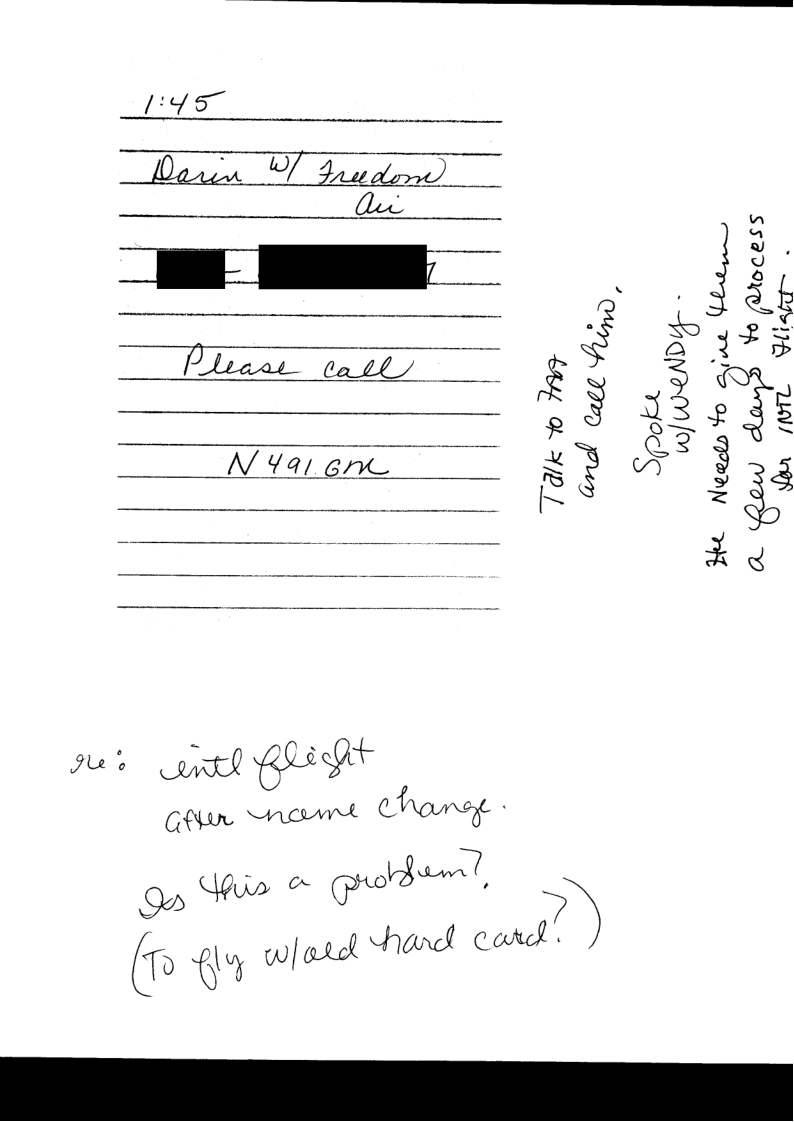 1:45
Darin w/ Freedom
Air
-
Please call
N491GM
Talk to
and call him.
Spoke
w/ WENDY.
He Needs to give them
a few days to process
for INTL Flight.
re: intl flight
after name change.
Is this a problem?
(To fly w/old hard card?)